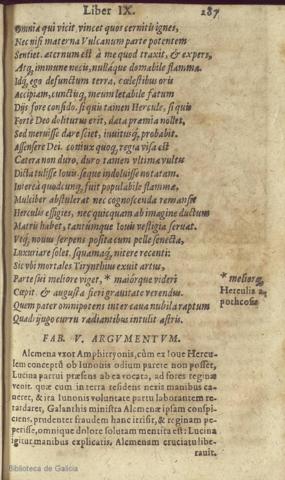 Liber IX. 187
Omnia qui vicit, vincet quos cernitis ignes,
Nec nisi materna Vulcanum parte potentem
Sentiet. aeternum est à me quod traxit, & expers,
Atq, immune necis, nullaque domabile flamma.
Idq, ego defunctum terra, caelestibus oris
Accipiam, cunctisq, meum letabile fatum
Dijs fore confido. si quis tamen Hercule, si quis
Forte Deo doliturus erit, data praemia nollet,
Sed meruisse dare sciet, invitusq, probabit.
Assensere Dei. coniux quoq, regia visa est
Caetera non duro, duro tamen vltima vultu
Dicta tulisse Iouis. seque indoluisse notatam.
Interea quodcunq, fuit populabile flammae,
Mulciber abstulerat nec cognoscenda remansit
Herculis effigies, nec quicquam ab imagine ductum
Matris habet, tantumque Iouis vestigia seruat.
Vtq, nouus serpens posita cum pelle senecta,
Luxuriare solet, squamaq, nitere recenti:
Sic vbi mortales Tirynthius exuit artus,
Parte sui meliore viget, * maiorque videri
Coepit & augusta fieri grauitate verendus.
Quem pater omnipotens inter caua nubila raptum
Quadrijugo curru radiantibus intulit astris.
* meliorq,
Herculis a,
pothcosis
FAB. V. ARGVMENTVM.
Alcmena vxor Amphitryonis, cùm ex Ioue Hercu
lem conceptū ob Iunonis odium parere non posset,
Lucina partui praesens ab ea vocata, ad fores regina
venit. quae cum in terra residens nexis manibus ca
neret, & ita Iunonis voluntate partu laborantem re
tardaret, Galanthis ministra Alcmenae ipsam conspi
ciens, prudenter fraudem hanc irrisit, & reginam pe
perisse, omnique dolore solutam mentita est: Lucina
igitur manibus explicatis, Alcmenam cruciatu libe-
rauit.
Biblioteca de Galicia